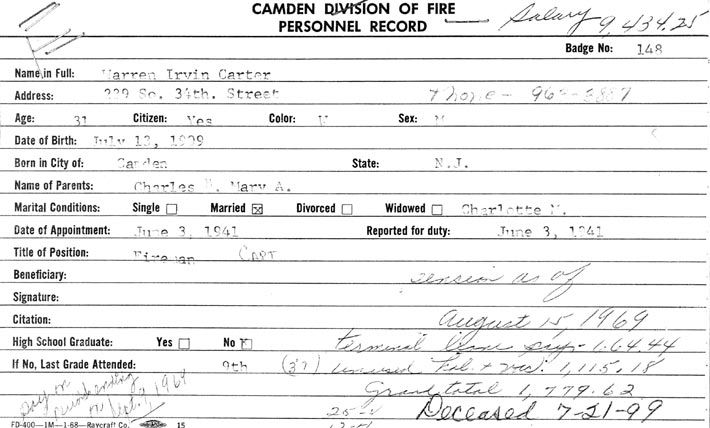 CAMDEN DIVISION OF FIRE
PERSONNEL RECORD
Salary 9,434.25
Badge No: 148
Name in Full: Warren Irvin Carter
Address: 229 So. 34th. Street
Phone -
Age: 31 Citizen: Yes Color: W Sex: M
Date of Birth: July 13,
Born in City of: Camden State: N.J.
Name of Parents: Charles Mary A.
Marital Conditions: Single ☐ Married ☒ Divorced ☐ Widowed ☐ Charlotte M.
Date of Appointment: June 3, 1941 Reported for duty: June 3, 1941
Title of Position: Fireman CAPT
Beneficiary: Pension as of
Signature:
Citation: August 15 1969
High School Graduate: Yes ☐ No ☒ terminal leave pay-
If No, Last Grade Attended: 9th unused Hol. + vac. 1,115.18
pay on
period ending
on Sept. 9, 1969
Grand total 1,779.62
Deceased 7-21-99
FD-400—1M—1-68—Raycraft Co. 15